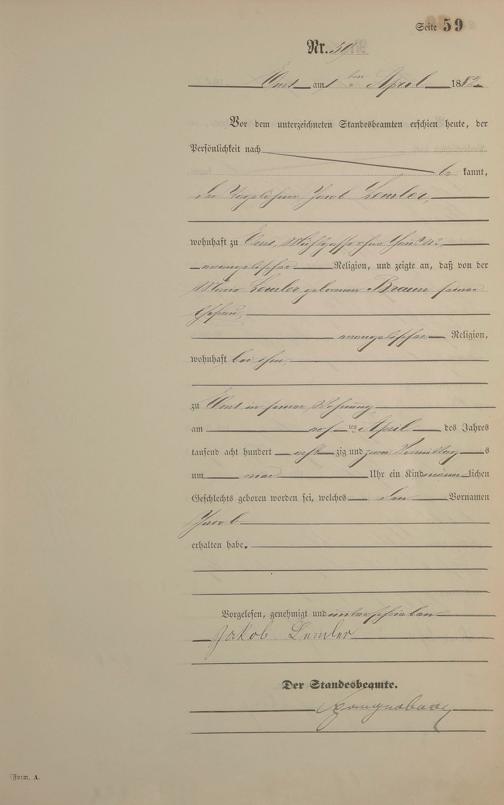 Seite 59
Nr.
Ems am April 1882
Vor dem unterzeichneten Standesbeamten erschien heute, der
Persönlichkeit nach
be kannt,
der Tagelöhner Jacob Lemler,
wohnhaft zu Ems,
evangelischer Religion, und zeigte an, daß von der
Lemler geborenen Braun seiner
Ehefrau,
evangelischer Religion,
wohnhaft bei ihm,
zu Ems in seiner Wohnung
am ten April des Jahres
tausend acht hundert achtzig und zwei Vormittags
um Uhr ein Kind männlichen
Geschlechts geboren worden sei, welches den Vornamen
Jacob
erhalten habe.
Vorgelesen, genehmigt und unterschrieben
Jakob Lemler
Der Standesbeamte.
Form. A.